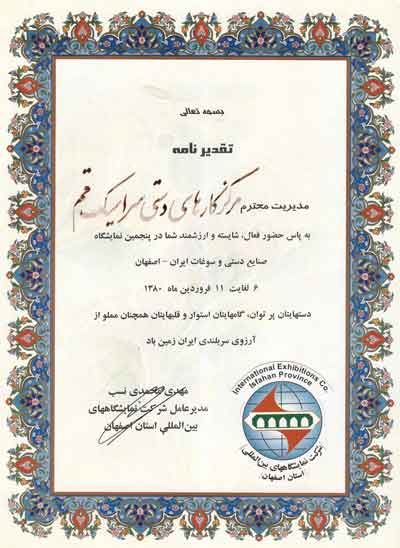 بسمه تعالی
تقدیر نامه
مدیریت محترم مرکز کارهای دستی سرامیک قم
به پاس حضور فعال، شایسته و ارزشمند شما در پنجمین نمایشگاه
صنایع دستی و سوغات ایران - اصفهان
۶ لغایت ۱۱ فروردین ماه ۱۳۸۰
دستهایتان پر توان، گامهایتان استوار و قلبهایتان همچنان مملو از
آرزوی سربلندی ایران زمین باد
مهدی محمدی نسب
مدیرعامل شرکت نمایشگاههای
بین‌المللی استان اصفهان
International Exhibitions Co.
Isfahan Province
شرکت نمایشگاههای بین‌المللی
استان اصفهان